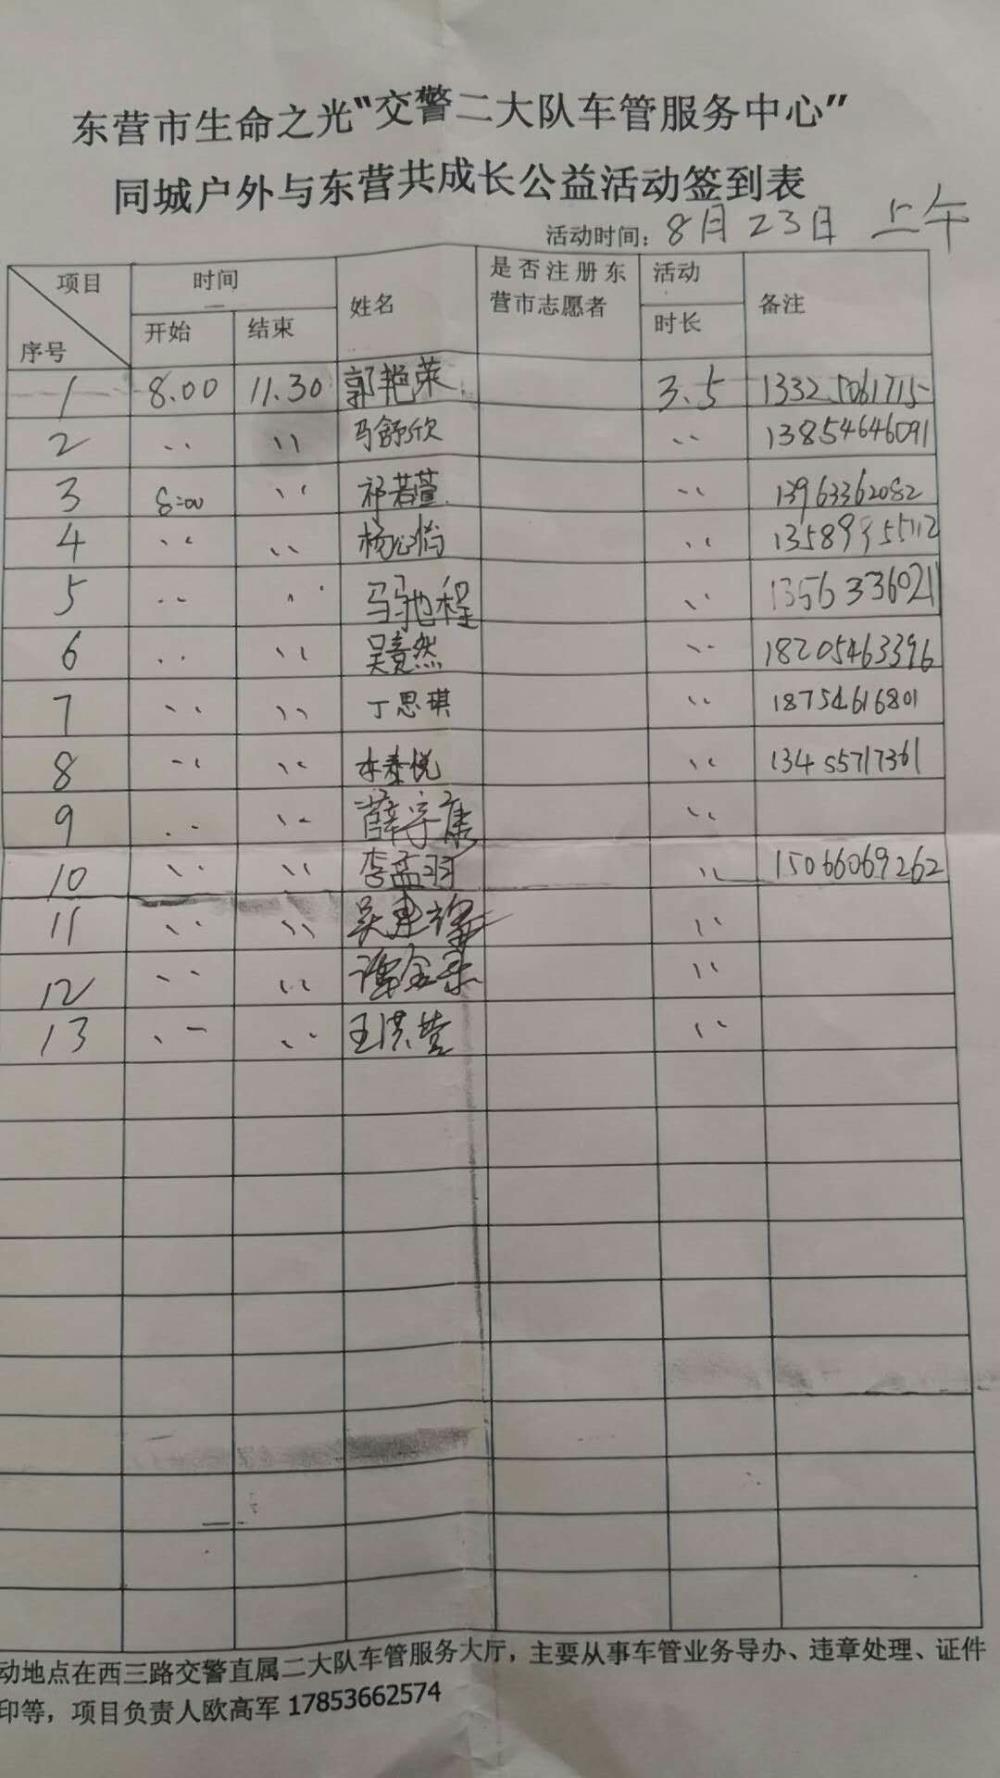 东营市生命之光“交警二大队车管服务中心”
同城户外与东营共成长公益活动签到表
活动时间：8月23日 上午
项目 时间 姓名 是否注册东营市志愿者 活动时长 备注
序号 开始 结束
1 8.00 11.30 郭艳荣 3.5 13325061715
2 〃 〃 马舒欣 〃 13854646091
3 8:00 〃 祁若萱 〃 13963362082
4 〃 〃 杨心怡 〃 13589955112
5 〃 〃 马驰程 〃 1356336021
6 〃 〃 吴竟然 〃 18205463396
7 〃 〃 丁思琪 〃 18754616801
8 〃 〃 〃 13455717361
9 〃 〃 薛宇康 〃
10 〃 〃 李孟羽 〃 15066069262
11 〃 〃 吴建 〃
12 〃 〃 〃
13 〃 〃 王洪营 〃
动地点在西三路交警直属二大队车管服务大厅，主要从事车管业务导办、违章处理、证件
印等，项目负责人欧高军 17853662574